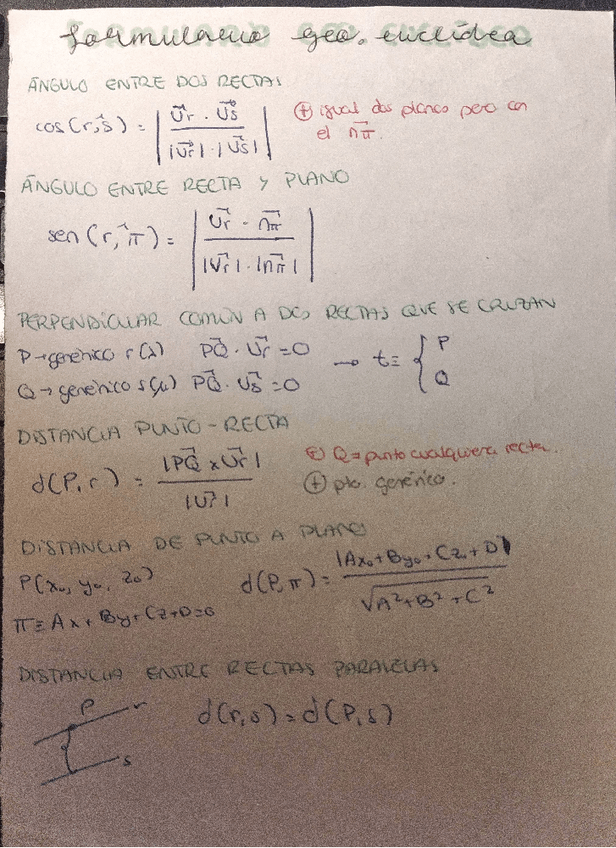 formulario geo. euclídea
ÁNGULO ENTRE DOS RECTAS
cos(r,s) = | Ur · Us / |Ur| · |Us| |
⊕ igual dos planos pero con
el nπ.
ÁNGULO ENTRE RECTA Y PLANO
sen(r,π) = | Ur · nπ / |Ur| · |nπ| |
PERPENDICULAR COMÚN A DOS RECTAS QUE SE CRUZAN
P→genérico r(λ) PQ · Ur = 0 → t≡ { P
Q→genérico s(μ) PQ · Us = 0 Q
DISTANCIA PUNTO-RECTA
d(P,r) = |PQ × Ur| / |Ur|
Q = punto cualquiera recta.
⊕ pto. genérico.
DISTANCIA DE PUNTO A PLANO
P(x₀, y₀, z₀) d(P,π) = |Ax₀+By₀+Cz₀+D| / √A²+B²+C²
π≡Ax+By+Cz+D=0
DISTANCIA ENTRE RECTAS PARALELAS
P r
d(r,s) = d(P,s)
s